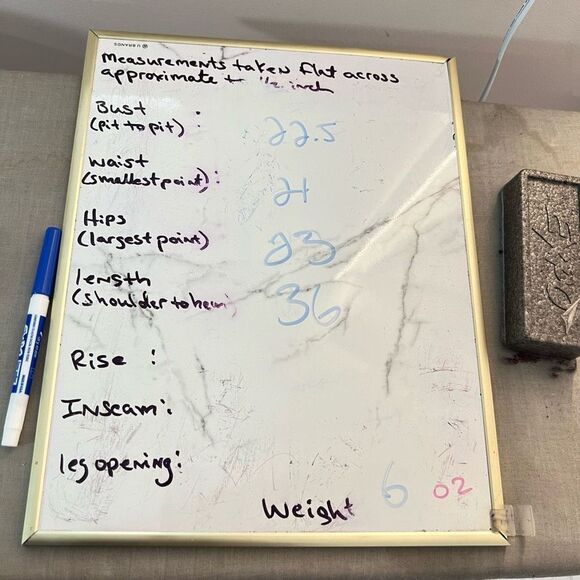 U BRANDS
Measurements taken flat across
approximate + 1/2 inch
Bust :
(pit to pit) 22.5
Waist
(smallest point): 21
Hips
(largest point) 23
length
(shoulder to hem) 36
Rise :
Inseam:
leg opening:
Weight 6 oz
EXPO